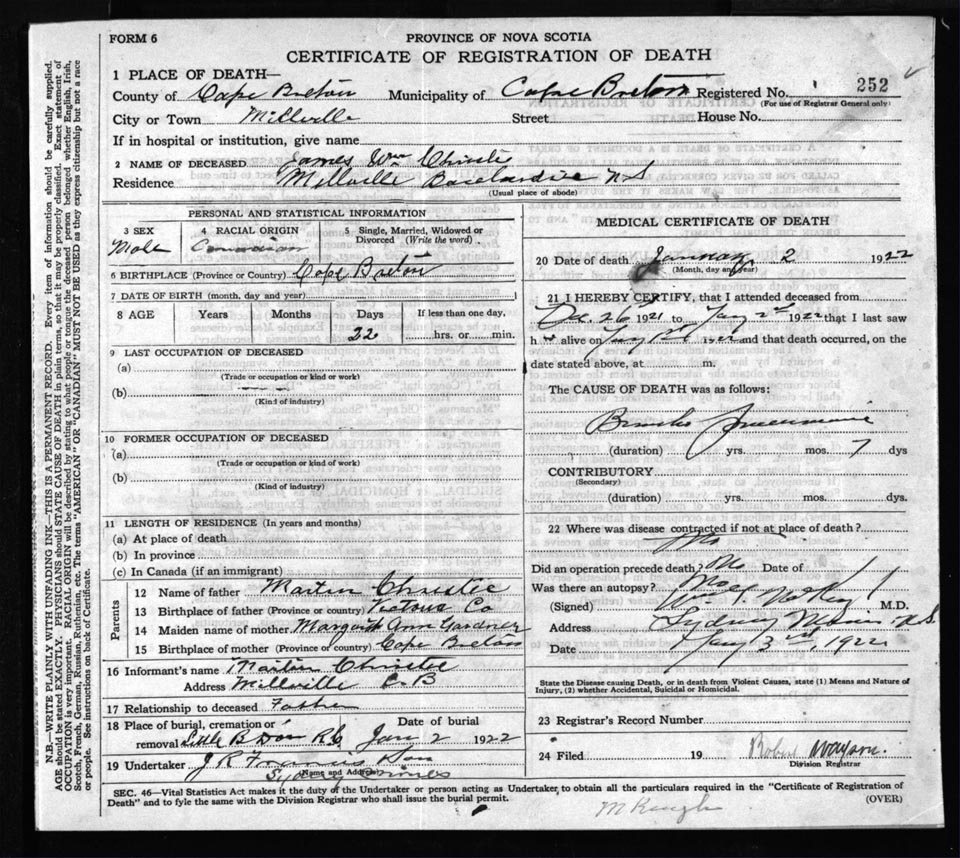 FORM 6
PROVINCE OF NOVA SCOTIA
CERTIFICATE OF REGISTRATION OF DEATH
1 PLACE OF DEATH—
County of Cape Breton Municipality of Cape Breton Registered No. 252
(For use of Registrar General only)
City or Town Millville Street House No.
If in hospital or institution, give name
2 NAME OF DECEASED James Wm Christie
Residence Millville N S
(Usual place of abode)
PERSONAL AND STATISTICAL INFORMATION
3 SEX 4 RACIAL ORIGIN 5 Single, Married, Widowed or
Divorced (Write the word)
Male Canadian
6 BIRTHPLACE (Province or Country) Cape Breton
7 DATE OF BIRTH (month, day and year)
8 AGE Years Months Days If less than one day,
22 hrs. or min.
9 LAST OCCUPATION OF DECEASED
(a)
(Trade or occupation or kind or work)
(b)
(Kind of industry)
10 FORMER OCCUPATION OF DECEASED
(a)
(Trade or occupation or kind of work)
(b)
(Kind of industry)
11 LENGTH OF RESIDENCE (In years and months)
(a) At place of death
(b) In province
(c) In Canada (if an immigrant)
Parents
12 Name of father Martin Christie
13 Birthplace of father (Province or country) Victoria Co
14 Maiden name of mother Margaret Ann Gardner
15 Birthplace of mother (Province or country) Cape Breton
16 Informant's name Martin Christie
Address Millville C. B
17 Relationship to deceased Father
18 Place of burial, cremation or Date of burial
removal Little B Dor Jan 2 1922
19 Undertaker J R Francis Son
(Name and Address)
Sydney Mines
MEDICAL CERTIFICATE OF DEATH
20 Date of death January 2 1922
(Month, day and year)
21 I HEREBY CERTIFY, that I attended deceased from
Dec. 26 1921 to Jany 2nd 1922 that I last saw
h alive on Jany 1st and that death occurred, on the
date stated above, at m.
The CAUSE OF DEATH was as follows:
Broncho Pneumonia
(duration) yrs. mos. 7 dys
CONTRIBUTORY
(Secondary)
(duration) yrs. mos. dys.
22 Where was disease contracted if not at place of death?
Did an operation precede death? No Date of
Was there an autopsy? No
(Signed) M.D.
Address Sydney Mines N.S.
Date Jany 3rd, 1922
State the Disease causing Death, or in death from Violent Causes, state (1) Means and Nature of
Injury, (2) whether Accidental, Suicidal or Homicidal.
23 Registrar's Record Number
24 Filed 19 Robert
Division Registrar
SEC. 46—Vital Statistics Act makes it the duty of the Undertaker or person acting as Undertaker to obtain all the particulars required in the "Certificate of Registration of
Death" and to fyle the same with the Division Registrar who shall issue the burial permit.
(OVER)
N.B.—WRITE PLAINLY WITH UNFADING INK—THIS IS A PERMANENT RECORD. Every item of information should be carefully supplied.
AGE should be stated EXACTLY. PHYSICIANS should STATE CAUSE OF DEATH in plain terms, so that it may be properly classified. Exact statement of
OCCUPATION is very important. RACIAL ORIGIN will be described by stating to what people or tongue the deceased person belonged, whether English, Irish,
Scotch, French, German, Russian, Ruthenian, etc. The terms "AMERICAN" OR "CANADIAN" MUST NOT BE USED as they express citizenship but not a race
or people. See instructions on back of Certificate.